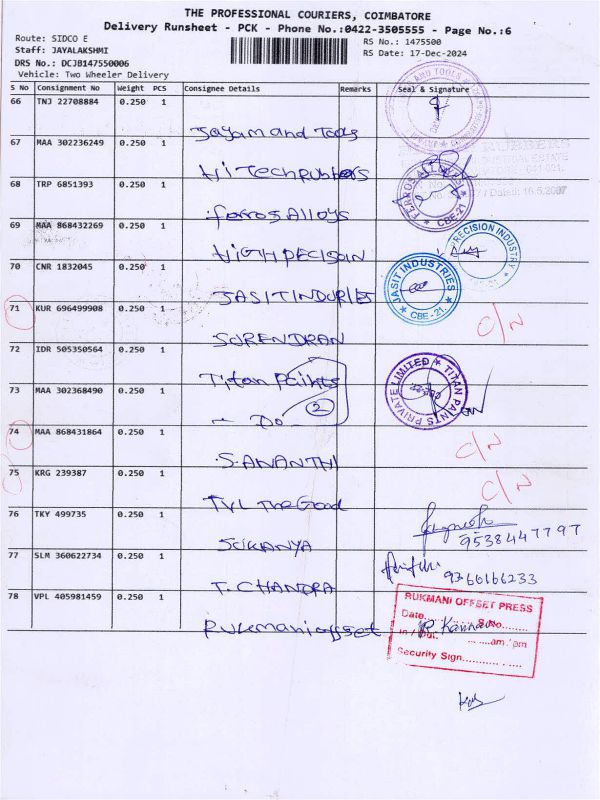 THE PROFESSIONAL COURIERS, COIMBATORE
Delivery Runsheet - PCK - Phone No.:0422-3505555 - Page No.:6
Route: SIDCO E
RS No.: 1475500
Staff: JAYALAKSHMI
RS Date: 17-Dec-2024
DRS No.: DCJB147550006
Vehicle: Two Wheeler Delivery
S No Consignment No Weight PCS Consignee Details Remarks Seal & Signature
66 TNJ 22708884 0.250 1
Jayam and Tools
67 MAA 302236249 0.250 1
Hi Tech rubbers
68 TRP 6851393 0.250 1
ferros Alloys
69 MAA 868432269 0.250 1
HIGH PECISION
70 CNR 1832045 0.250 1
JASIT INDURIES
71 KUR 696499908 0.250 1 C/N
SURENDRAN
72 IDR 505350564 0.250 1
Titan Paints
73 MAA 302368490 0.250 1
- Do - 2
74 MAA 868431864 0.250 1 C/N
S. ANANTHI
75 KRG 239387 0.250 1 C/N
TVL The Good
76 TKY 499735 0.250 1
SUKANYA 9538447797
77 SLM 360622734 0.250 1
T. CHANDRA 9366166233
78 VPL 405981459 0.250 1
Rukmani offset
AND TOOLS
RUBBERS
INDUSTRIAL ESTATE
641 021.
Dated: 16.5.2007
FERROS ALLOYS
CBE-21
PRECISION INDUSTRY
JASIT INDUSTRIES
CBE-21.
TITAN PAINTS PRIVATE LIMITED
RUKMANI OFFSET PRESS
Date S.No
In / Out am/pm
R Kannan
Security Sign